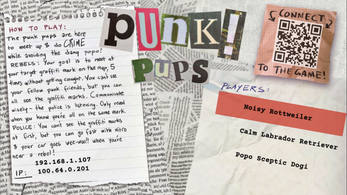 HOW TO PLAY:
The punk pups are here
to meet up & do CRIME
while avoiding the dang popo!
REBELS: Your goal is to meet at
your target graffiti mark on the map, 5
times without getting caught. You can't see
your fellow punk friends, but you can
all see the graffiti marks. Communicate
wisely - the police is listening. Only need
when you know you're all on the same mark.
POLICE: You can't see the graffiti marks
at first, but you can go fast with extra
& your car goes wee-woo! when you're
near a rebel!
192.168.1.107
IP: 100.64.0.201
pUNK!
PUPS
CONNECT
TO THE GAME!
PLAYERS:
Noisy Rottweiler
Calm Labrador Retriever
Popo Sceptic Dogi